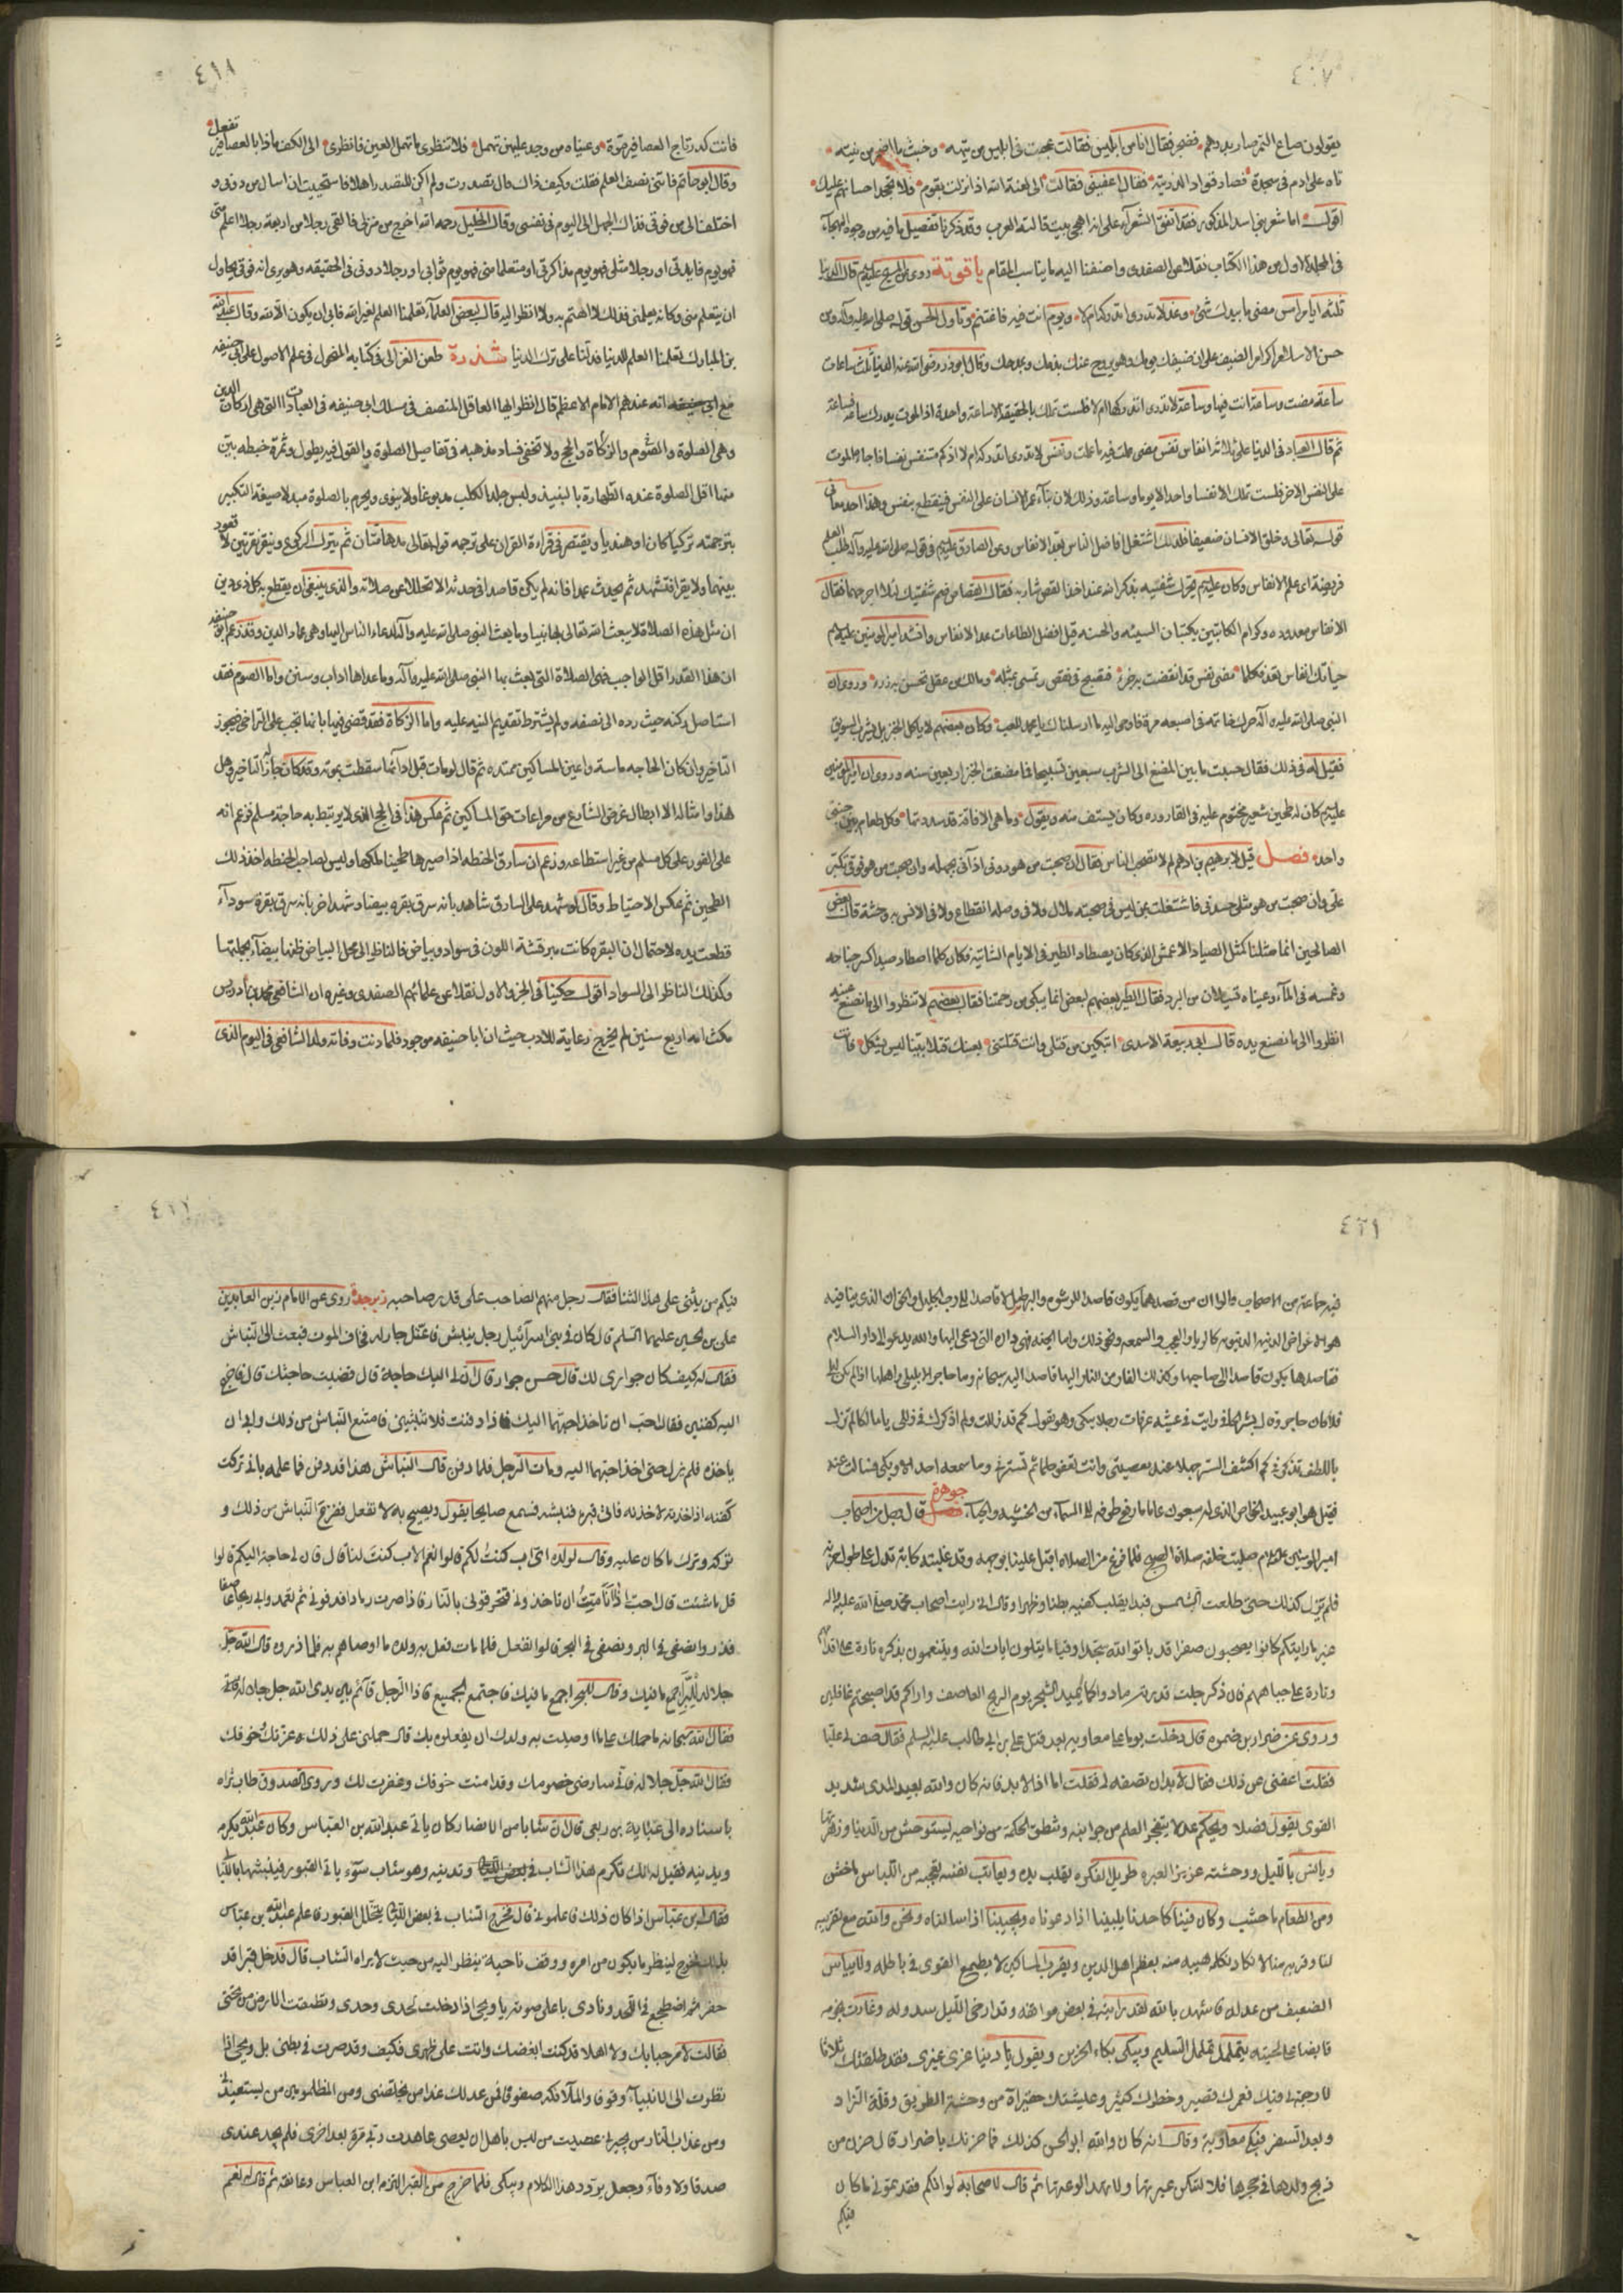 ٤٠٧
يقولون صاع التمر صار بدرهم فضجر فقال الناس ابليس فقالت عجبت فى ابليس من تيهه وخبث ما اضمر من نيته
تاه على ادم فى سجدة فصار قوادا لذريته فقال اعفينى فقالت الى لعنة الله اذا نزلت بقوم فلا تجحد احسانهم عليك
اقول اما شعر بنى اسد المذكور فقد اتفق الشعرآء على انه اهجى بيت قالته العرب وقد ذكرنا تفصيل ما فيه من وجوه الهجاء
فى المجلد الاول من هذا الكتاب نقلا عن الصفدى واضفنا اليه ما يناسب المقام ياقوتة روى عن المسيح عليه السلم قال الدنيا
ثلثة ايام امس مضى ما بيدك منه شئ وغد لا تدرى اتدركه ام لا ويوم انت فيه فاغتنمه وتاول الحسن قوله صلى الله عليه وآله من
حسن الاسلام اكرام الضيف على ان ضيفك يومك وهو يروح عنك بذمك وبمدحك وقال ابوذر رضى الله عنه الدنيا ثلث ساعات
ساعة مضت وساعة انت فيها وساعة لا تدرى اتدركها ام لا فلست تملك بالحقيقة الا ساعة واحدة اذ الموت يدرك ساعة فساعة
ثم قال العباد فى الدنيا على ثلاثة انفاس نفس مضى عملت فيه ما عملت ونفس لا تدرى اتدركه ام لا اذ كم متنفس نفسا فاجاه الموت
على النفس الاخر فلست تملك الا نفسا واحدا لا يوما وساعة وذلك لان بناء عمر الانسان على النفس فينقطع بنفس وهذا احد معانى
قوله تعالى وخلق الانسان ضعيفا فلذلك اشتغل افاضل الناس بعد الانفاس وعن الصادق عليه السلم فى قوله صلى الله عليه وآله طلب العلم
فريضة اى علم الانفاس وكان عليه السلم يحرك شفتيه بذكر الله عند اخذ القص شاربه فقال القصاص ضم شفتيك لئلا اجرحهما فقال
الانفاس معدوده وكرام الكاتبين يكتبان السيئه والحسنه قيل افضل الطاعات عد الانفاس وانشد امير المومنين عليه السلم
حياتك انفاس تعد فكلما مضى نفس قد انقضت به جزء فتصبح فى نقص وتمسى بمثله ومالك من عقل تحس به رزء وروى ان
النبى صلى الله عليه وآله حرك خاتمه فى اصبعه مرة فاوحى اليه ما ارسلناك يا محمد للعب وكان بعضهم لا ياكل الخبز بل يشرب السويق
فقيل له فى ذلك فقال حسبت ما بين المضغ الى الشرب سبعين تسبيحا فما مضغت الخبز اربعين سنه وروى ان امير المومنين
عليه السلم كان له طحين شعير مختوم عليه فى القاروره وكان يستف منه ويقول وما هى الا فاقة قد سددتها وكل طعام بين جنبى
واحد فصل قيل لابرهيم بن ادهم لم لا تصحب الناس فقال ان صحبت من هو دونى اذانى بجهله وان صحبت من هو فوقى تكبر
على وان صحبت من هو مثلى حسدنى فاشتغلت بمن ليس فى صحبته ملال ولا فى وصله انقطاع ولا فى الانس به وحشة قال بعض
الصالحين انما مثلنا كمثل الصياد الاعمش الذى كان يصطاد الطير فى الايام الشاتية فكان كلما اصطاد صيدا كسر جناحه
وغمسه فى المآء وعيناه تسيلان من البرد فقال الطير بعضهم لبعض انما يبكى من رحمتنا فقال بعضهم لا تنظروا الى ما تصنع عينه
انظروا الى ما تصنع يده قال ابو ربيعة الاسدى اتبكين من قتلى وانت قتلتنى بعينك قتلا بينا ليس يشكل فانت
٤١٨
فانت كمذباح العصافير ضرة وعيناه من وجد عليهن تهمل فلا تنظرى ما تهمل العين فانظرى الى الكف ماذا بالعصافير تفعل
وقال ابو حاتم فاتنى نصف العلم فقلت وكيف ذاك قال تصدرت ولم اكن للتصدر اهلا فاستحييت ان اسال من دونى و
اختلف الى من فوقى فذاك الجهل الى اليوم فى نفسى وقال الخليل رحمه الله اخرج من منزلى فالقى رجلا من اربعة رجلا اعلم منى
فهو يوم فايدتى او رجلا مثلى فهو يوم مذاكرتى او متعلما منى فهو يوم ثوابى او رجلا دونى فى الحقيقه وهو يرى انه فوقى يحاول
ان يتعلم منى وكانه يعلمنى فذلك لا اهتم به ولا انظر اليه قال بعض العلمآء تعلمنا العلم لغير الله فابى ان يكون الا لله وقال عبد الله
بن المبارك تعلمنا العلم للدنيا فدلنا على ترك الدنيا شذرة طعن الغزالى فى كتابه المنخول فى علم الاصول على ابى حنيفه
مع انه عندهم الامام الاعظم قال انظر ايها العاقل المنصف فى مسلك ابى حنيفه فى العبادات التى هى اركان الدين
وهى الصلوة والصوم والزكاة والحج ولا تخفى فساد مذهبه فى تفاصيل الصلوة والقول فيه يطول وثمرة خبطه بين
منها اقل الصلوة عنده الطهارة بالنبيذ ولبس جلد الكلب مدبوغا ولا ينوى ويحرم بالصلوة مبدلا صيغة التكبير
بترجمته تركيا كان او هنديا ويقتصر فى قراءة القران على ترجمه قوله تعالى مدهامتان ثم يترك الركوع وينقر نقرتين لا قعود
بينهما ولا يقرا فتشهد ثم يحدث عمدا فانه لم يكن قاصدا فى حدثه الا تحلل عن صلاته والذى ينبغى ان يقطع به كل ذى دين
ان مثل هذه الصلاة لا يبعث الله تعالى بها نبيا وما بعث النبى صلى الله عليه وآله لدعاء الناس اليها وهى عماد الدين وقد زعم ابو حنيفه
ان هذا القدر اقل الواجب فهى الصلاة التى بعث بها النبى صلى الله عليه وآله وما عداها اداب وسنن واما الصوم فقد
استاصل ركنه حيث رده الى نصفه ولم يشترط تقديم النيه عليه واما الزكاة فقد قضى فيها بانها تجب على التراخى فيجوز
التاخير وان كان الحاجه ماسة واعين المساكين ممتده ثم قال لو مات قبل ادآئها سقطت بموته وقد كان جاز له التاخير وهل
هذا وامثاله الا ابطال غرض الشارع من مراعات حق المساكين ثم عكس هذا فى الحج الذى لا يرتبط به حاجة مسلم فزعم انه
على الفور على كل مسلم من غير استطاعه وزعم ان سارق الحنطه اذا صيرها طحينا ملكها وليس لصاحب الحنطه اخذ ذلك
الطحين ثم عكس الاحتياط وقال لو شهد على السارق شاهد بانه سرق بقره بيضا وشهد اخر بانه سرق بقرة سودآء
قطعت يده لاحتمال ان البقره كانت مبرقشة اللون فى سواد وبياض فالناظر الى محل البياض ظنها بيضآء بجملتها
وكذلك الناظر الى السواد اقول حكينا فى الجزء الاول نقلا عن علمائهم الصفدى وغيره ان الشافعى محمد بن ادريس
مكث امه اربع سنين لم يخرج رعاية للادب حيث ان ابا حنيفه موجود فلما دنت وفاته ولد الشافعى فى اليوم الذى
٤٢١
فيه جماعة من الاصحاب قالوا ان من قصدهما يكون قاصدا
هو الاعراض الدنيه الدنيويه كالريا والعجب والسمعه ونحو ذلك واما الجنه فهى دار التى دعى اليها والله يدعو الى دار السلام
فقاصدها يكون قاصدا الى صاحبها وكذلك الفار من النار اليها قاصدا اليه سبحانه
رايت فى عشية عرفات رجلا يبكى وهو يقول كم قد زللت ولم اذكرك فى زللى يا مالكا لم تزل
باللطف تذكرنى كم اكشف الستر جهلا عند معصيتى وانت تعفو حلما ثم تسترنى وما سمعه احد الا وبكى فسالت عنه
فقيل هو ابو عبيد الخواص الذى له سبعون عاما ما رفع طرفه الى السمآء من الخشيه والحيآء جوهرة قال رجل من اصحاب
امير المومنين عليه السلام صليت خلفه صلاة الصبح فلما فرغ من الصلاه اقبل علينا بوجهه وقد غلبته كابة تدل على طول حزنه
فلم يزل كذلك حتى طلعت الشمس فبدا يقلب كفيه بطنا وظهرا وقال انى رايت اصحاب محمد صلى الله عليه واله
غير ما رايتكم كانوا يصبحون صفرا قد باتوا لله سجدا وقياما يتلون ايات الله ويتنعمون بذكره تارة على اقدامهم
وتارة على جباههم فان ذكر جلت قدرته مادوا كما تميد الشجر يوم الريح العاصف واراكم قد اصبحتم غافلين
وروى عن ضرار بن ضمره قال دخلت يوما على معاويه بعد قتل على بن ابى طالب عليه السلم فقال صف لى عليا
فقلت اعفنى من ذلك فقال لابد ان تصفه لى فقلت اما اذا لابد فانه كان والله بعيد المدى شديد
القوى يقول فصلا ويحكم عدلا يتفجر العلم من جوانبه وتنطق الحكمة من نواحيه يستوحش من الدنيا وزهرتها
ويانس بالليل ووحشته غزير العبره طويل الفكره يقلب يده ويعاتب نفسه يعجبه من اللباس ما خشن
ومن الطعام ما جشب وكان فينا كاحدنا يلبينا اذا دعوناه ويجيبنا اذا سالناه ونحن والله مع تقريبه
لنا وقربه منا لا نكاد نكلمه هيبه منه يعظم اهل الدين ويقرب المساكين لا يطمع القوى فى باطله ولا يياس
الضعيف من عدله فاشهد بالله لقد رايته فى بعض مواقفه وقد ارخى الليل سدوله وغارت نجومه
قابضا على لحيته يتململ تململ السليم ويبكى بكاء الحزين ويقول يا دنيا غرى غيرى فقد طلقتك ثلاثا
لا رجعة لى فيك فعمرك قصير وخطرك كثير وعيشتك حقير آه من وحشة الطريق وقلة الزاد
وبعد السفر فبكى معاوية وقال انه كان والله ابو الحسن كذلك فما حزنك يا ضرار قال حزن من
ذبح ولدها فى حجرها فلا تسكن عبرتها ولا تهدا لوعتها ثم قال لاصحابه لو انكم فقدتمونى ما كان
فيكم
فيكم من يثنى على هذا الثنا فقال رجل منهم الصاحب على قدر صاحبه زبرجدة روى عن الامام زين العابدين
على بن الحسين عليهما السلم قال كان فى بنى اسرآئيل رجل ينبش فاعتل جار له فخاف الموت فبعث الى النباش
فقال له كيف كان جوارى لك قال حسن جوار قال ان لى اليك حاجة قال قضيت حاجتك قال فاخرج
اليه كفنين فقال احب ان تاخذ احبهما اليك فاذا دفنت فلا تنبشنى فامتنع النباش من ذلك وابى ان
ياخذه فلم يزل حتى اخذ احبهما اليه ومات الرجل فلما دفن قال النباش هذا قد دفن فما علمه بانى تركت
كفنه او اخذته لاخذنه فاتى قبره فنبشه فسمع صايحا يقول ويصيح به لا تفعل ففزع النباش من ذلك و
تركه وترك ما كان عليه وقال لولده اى اب كنت لكم قالوا نعم الاب كنت لنا قال فان لى حاجة اليكم قالوا
قل ما شئت قال احب اذا انا مت ان تاخذونى فتحرقونى بالنار فاذا صرت رمادا فدقونى ثم تعمدوا بى ريحا عاصفا
فذروا نصفى فى البر ونصفى فى البحر قالوا نفعل فلما مات فعل به ولده ما اوصاهم به فلما ذروه قال الله جل
جلاله للبر اجمع ما فيك وقال للبحر اجمع ما فيك فاجتمع الجميع فاذا الرجل قآئم بين يدى الله جل جلاله
فقال الله سبحانه ما حملك على ما اوصيت به ولدك ان يفعلوه بك قال حملنى على ذلك وعزتك خوفك
فقال الله جل جلاله فانى سارضى خصومك وقد امنت خوفك وغفرت لك وروى الصدوق طاب ثراه
باسناده الى عباية بن ربعى قال ان شابا من الانصار كان ياتى عبد الله بن العباس وكان عبد الله يكرمه
ويدنيه فقيل له انك تكرم هذا الشاب وتدنيه وهو شاب سوء ياتى القبور فينبشها بالليالى
فقال ابن عباس اذا كان ذلك فاعلمونى قال فخرج الشاب فى بعض الليالى يتخلل القبور فاعلم عبد الله بن عباس
بذلك فخرج لينظر ما يكون من امره ووقف ناحية ينظر اليه من حيث لا يراه الشاب قال فدخل قبرا قد
حفر ثم اضطجع فى اللحد ونادى باعلى صوته يا ويحى اذا دخلت لحدى وحدى ونطقت الارض من تحتى
فقالت لا مرحبا بك ولا اهلا قد كنت ابغضك وانت على ظهرى فكيف وقد صرت فى بطنى بل ويحى اذا
نظرت الى الانبيآء وقوفا والملآئكه صفوفا فمن عدلك غدا من يخلصنى ومن المظلومين من يستنقذنى
ومن عذاب النار من يجيرنى عصيت من ليس باهل ان يعصى عاهدت ربى مرة بعد اخرى فلم يجد عندى
صدقا ولا وفآء وجعل يردد هذا الكلام ويبكى فلما خرج من القبر التزمه ابن العباس وعانقه ثم قال له نعم